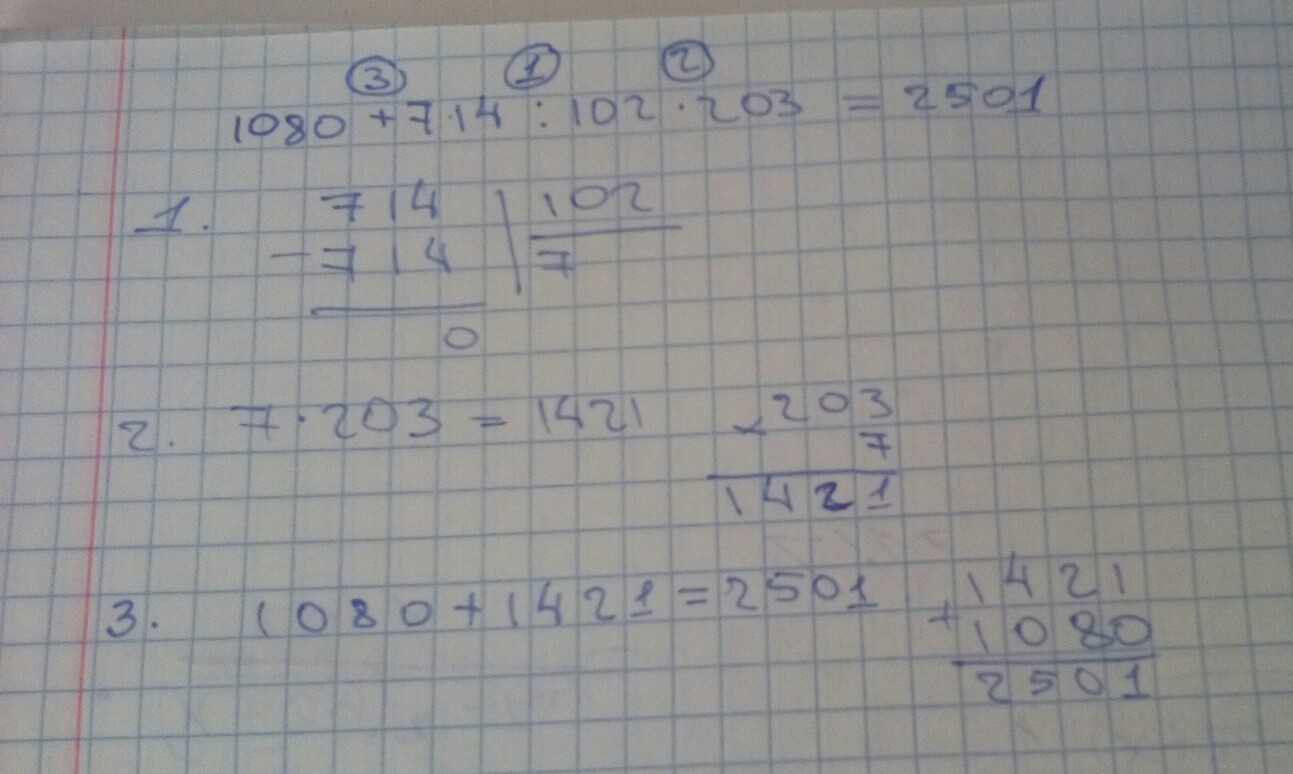 3 1 2
1080 + 714 : 102 · 203 = 2501
1. 714 102
− 714 7
0
2. 7 · 203 = 1421
× 203
7
1421
3. 1080 + 1421 = 2501
1421
+ 1080
2501